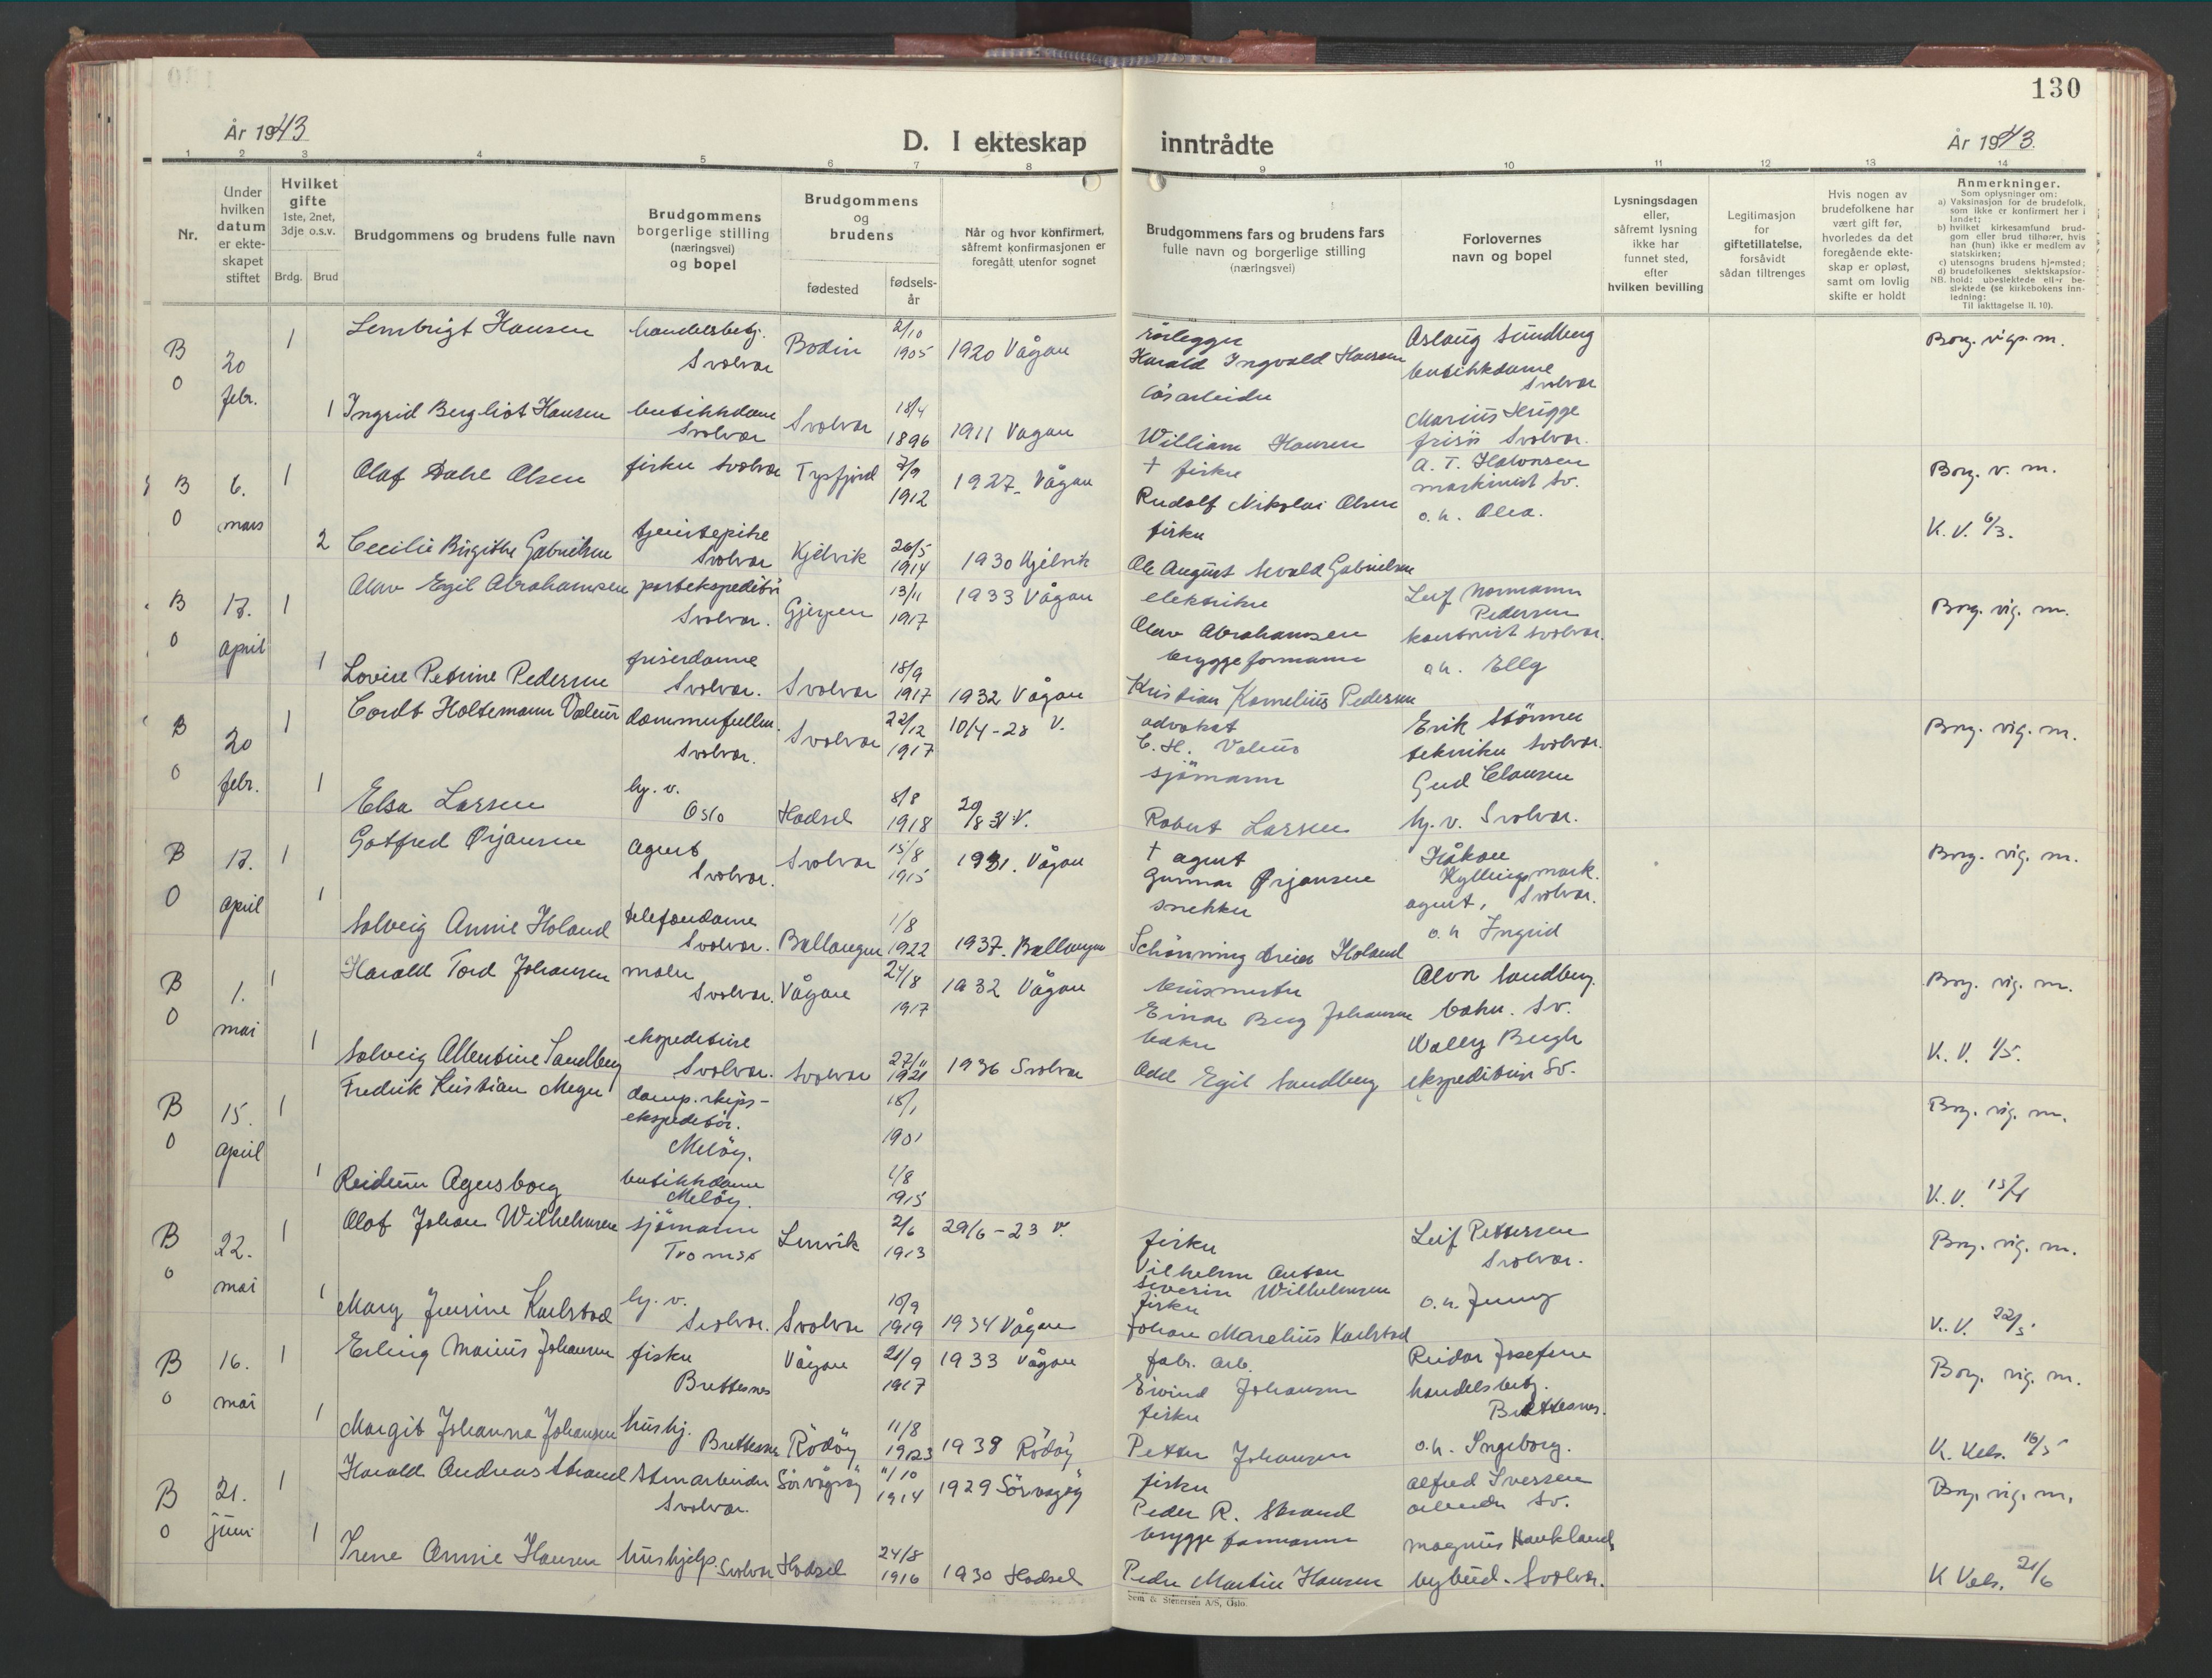 130
År 1943
D. I ekteskap inntrådte
År 1943.
1 2 3 4 5 6 7 8 9 10 11 12 13 14
Nr.
Under hvilken datum er ekteskapet stiftet
Hvilket gifte 1ste, 2net, 3dje o.s.v.
Brdg. Brud
Brudgommens og brudens fulle navn
Brudgommens borgerlige stilling (næringsvei) og bopel
Brudgommens og brudens
fødested
fødsels-år
Når og hvor konfirmert, såfremt konfirmasjonen er foregått utenfor sognet
Brudgommens fars og brudens fars fulle navn og borgerlige stilling (næringsvei)
Forlovernes navn og bopel
Lysningsdagen eller, såfremt lysning ikke har funnet sted, efter hvilken bevilling
Legitimasjon for giftetillatelse, forsåvidt sådan tiltrenges
Hvis nogen av brudefolkene har vært gift før, hvorledes da det foregående ekteskap er opløst, samt om lovlig skifte er holdt
Anmerkninger.
Som oplysninger om:
a) Vaksinasjon for de brudefolk, som ikke er konfirmert her i landet;
b) hvilket kirkesamfund brudgom eller brud tilhører, hvis han (hun) ikke er medlem av statskirken;
c) utensogns brudens hjemsted;
d) brudefolkenes slektskapsforhold: ubeslektede eller beslektede (se kirkebokens innledning:
NB. Til iakttagelse II, 10).
B O 20 febr. 1 Lembrigt Hansen handelsbetj. Svolvær Bodin 2/10 1905 1920 Vågan rørlegger Harald Ingvald Hansen Aslaug Sundberg butikkdame Svolvær Borg. vigs. m.
1 Ingrid Bergliot Hansen butikkdame Svolvær Svolvær 18/4 1896 1911 Vågan løsarbeider William Hansen Marius frisør Svolvær.
B O 6. mars 1 Olaf Dahl Olsen fisker Svolvær Tysfjord 7/9 1912 1927. Vågan † fisker Rudolf Nikolai Olsen A. T. Håkonsen maskinist Sv. Borg. v. m.
2 Cecilie Birgithe Gabrielsen tjenestepike Svolvær Kjelvik 26/5 1914 1930 Kjelvik fisker Ole August Sevald Gabrielsen o. h. Olea. K. V. 6/3.
B O 17. april 1 Olav Egil Abrahamsen postekspeditør Svolvær. Gjerpen 13/11 1917 1933 Vågan elektriker Olav Abrahamsen Leif Normann Pedersen kontorist Svolvær. Borg. vig. m.
1 Lovise Petrine Pedersen friserdame Svolvær. Svolvær 18/9 1917 1932 Vågan bryggeformann Kristian Kornelius Pedersen o. h. Elly
B O 20 febr. 1 Cordt Holtemann Valeur dommerfullm. Svolvær. Svolvær 22/12 1917 10/4-28 V. advokat C. H. Valeur Erik Størmer tekniker Svolvær. Borg. vig. m.
1 Elsa Larsen hj. v. Oslo Hadsel 8/8 1918 29/8 31 V. sjømann Robert Larsen Gud Clausen hj. v. Svolvær.
B O 17. april 1 Gotfred Ørjansen agent Svolvær. Svolvær 15/8 1915 1931. Vågan † agent Gunnar Ørjansen Håkon Kyllingmark. agent, Svolvær. Borg. vig. m.
1 Solveig Annie Holand telefondame Svolvær. Ballangen 1/8 1922 1937. Ballangen snekker Schønning Dreier Holand o. h Ingrid
B O 1. mai 1 Harald Tord Johansen maler Svolvær. Vågan 24/8 1917 1932 Vågan Einar Berg Johansen Alvr Sandberg baker. Sv. Borg. vig. m.
1 Solveig Albertine Sandberg ekspeditrise Svolvær. Svolvær 27/11 1921 1936 Svolvær baker Odd Egil Sandberg Wally Bergh ekspeditrise Sv. K. V. 1/5.
B O 15. april 1 Fredrik Kristian Meyer damp.skips-ekspeditør. Meløy. 18/1 1901 Borg. vig. m.
1 Reidun Agersborg butikkdame Meløy. 1/8 1915 K. V. 15/4
B O 22. mai 1 Olaf Johan Wilhelmsen sjømann Tromsø Lenvik 2/6 1913 29/6-23 V. fisker Vilhelm Anton Severin Wilhelmsen Leif Pettersen Svolvær. Borg. vig. m.
1 Mary Jensine Karlstad hj. v. Svolvær. Svolvær 10/9 1919 1934 Vågan fisker Johan Marelius Karlstad o. h. Jenny K. V. 22/5
B O 16. mai 1 Erling Marius Johansen fisker Brettesnes Vågan 21/9 1917 1933 Vågan fabr. arb. Eivind Johansen Reidar Josefsen handelsbetj. Brettesnes. Borg. vig. m.
1 Margit Johanna Johansen hushj. Brettesnes Rødøy 11/8 1923 1938 Rødøy fisker Petter Johansen o. h. Ingeborg. K. Vels. 16/5
B O 21. juni 1 Harald Andreas Strand stenarbeider Svolvær. Sørvågøy 11/10 1914 1929 Sørvågøy fisker Peder R. Strand Alfred Iversen arbeider Sv. Borg. vig. m.
1 Irene Annie Hansen hushjelp. Svolvær Hadsel 24/8 1916 1930 Hadsel bryggeformann Peder Martin Hansen Magnus Haukland bybud. Svolvær. K Vels. 21/6
Sem & Stenersen A/S, Oslo.